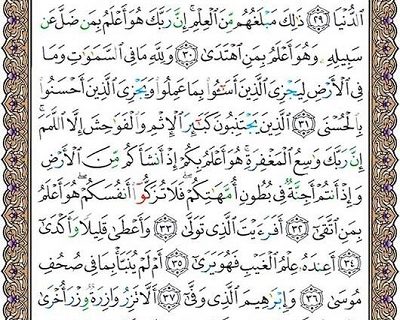 ٱلدُّنْيَا ﴿٢٩﴾ ذَٰلِكَ مَبْلَغُهُم مِّنَ ٱلْعِلْمِ ۚ إِنَّ رَبَّكَ هُوَ أَعْلَمُ بِمَن ضَلَّ عَن
سَبِيلِهِۦ وَهُوَ أَعْلَمُ بِمَنِ ٱهْتَدَىٰ ﴿٣٠﴾ وَلِلَّهِ مَا فِى ٱلسَّمَٰوَٰتِ وَمَا
فِى ٱلْأَرْضِ لِيَجْزِىَ ٱلَّذِينَ أَسَٰٓـُٔوا۟ بِمَا عَمِلُوا۟ وَيَجْزِىَ ٱلَّذِينَ أَحْسَنُوا۟
بِٱلْحُسْنَى ﴿٣١﴾ ٱلَّذِينَ يَجْتَنِبُونَ كَبَٰٓئِرَ ٱلْإِثْمِ وَٱلْفَوَٰحِشَ إِلَّا ٱللَّمَمَ ۚ
إِنَّ رَبَّكَ وَٰسِعُ ٱلْمَغْفِرَةِ ۚ هُوَ أَعْلَمُ بِكُمْ إِذْ أَنشَأَكُم مِّنَ ٱلْأَرْضِ
وَإِذْ أَنتُمْ أَجِنَّةٌ فِى بُطُونِ أُمَّهَٰتِكُمْ ۖ فَلَا تُزَكُّوٓا۟ أَنفُسَكُمْ ۖ هُوَ أَعْلَمُ
بِمَنِ ٱتَّقَىٰٓ ﴿٣٢﴾ أَفَرَءَيْتَ ٱلَّذِى تَوَلَّىٰ ﴿٣٣﴾ وَأَعْطَىٰ قَلِيلًا وَأَكْدَىٰٓ
﴿٣٤﴾ أَعِندَهُۥ عِلْمُ ٱلْغَيْبِ فَهُوَ يَرَىٰٓ ﴿٣٥﴾ أَمْ لَمْ يُنَبَّأْ بِمَا فِى صُحُفِ
مُوسَىٰ ﴿٣٦﴾ وَإِبْرَٰهِيمَ ٱلَّذِى وَفَّىٰٓ ﴿٣٧﴾ أَلَّا تَزِرُ وَازِرَةٌ وِزْرَ أُخْرَىٰ